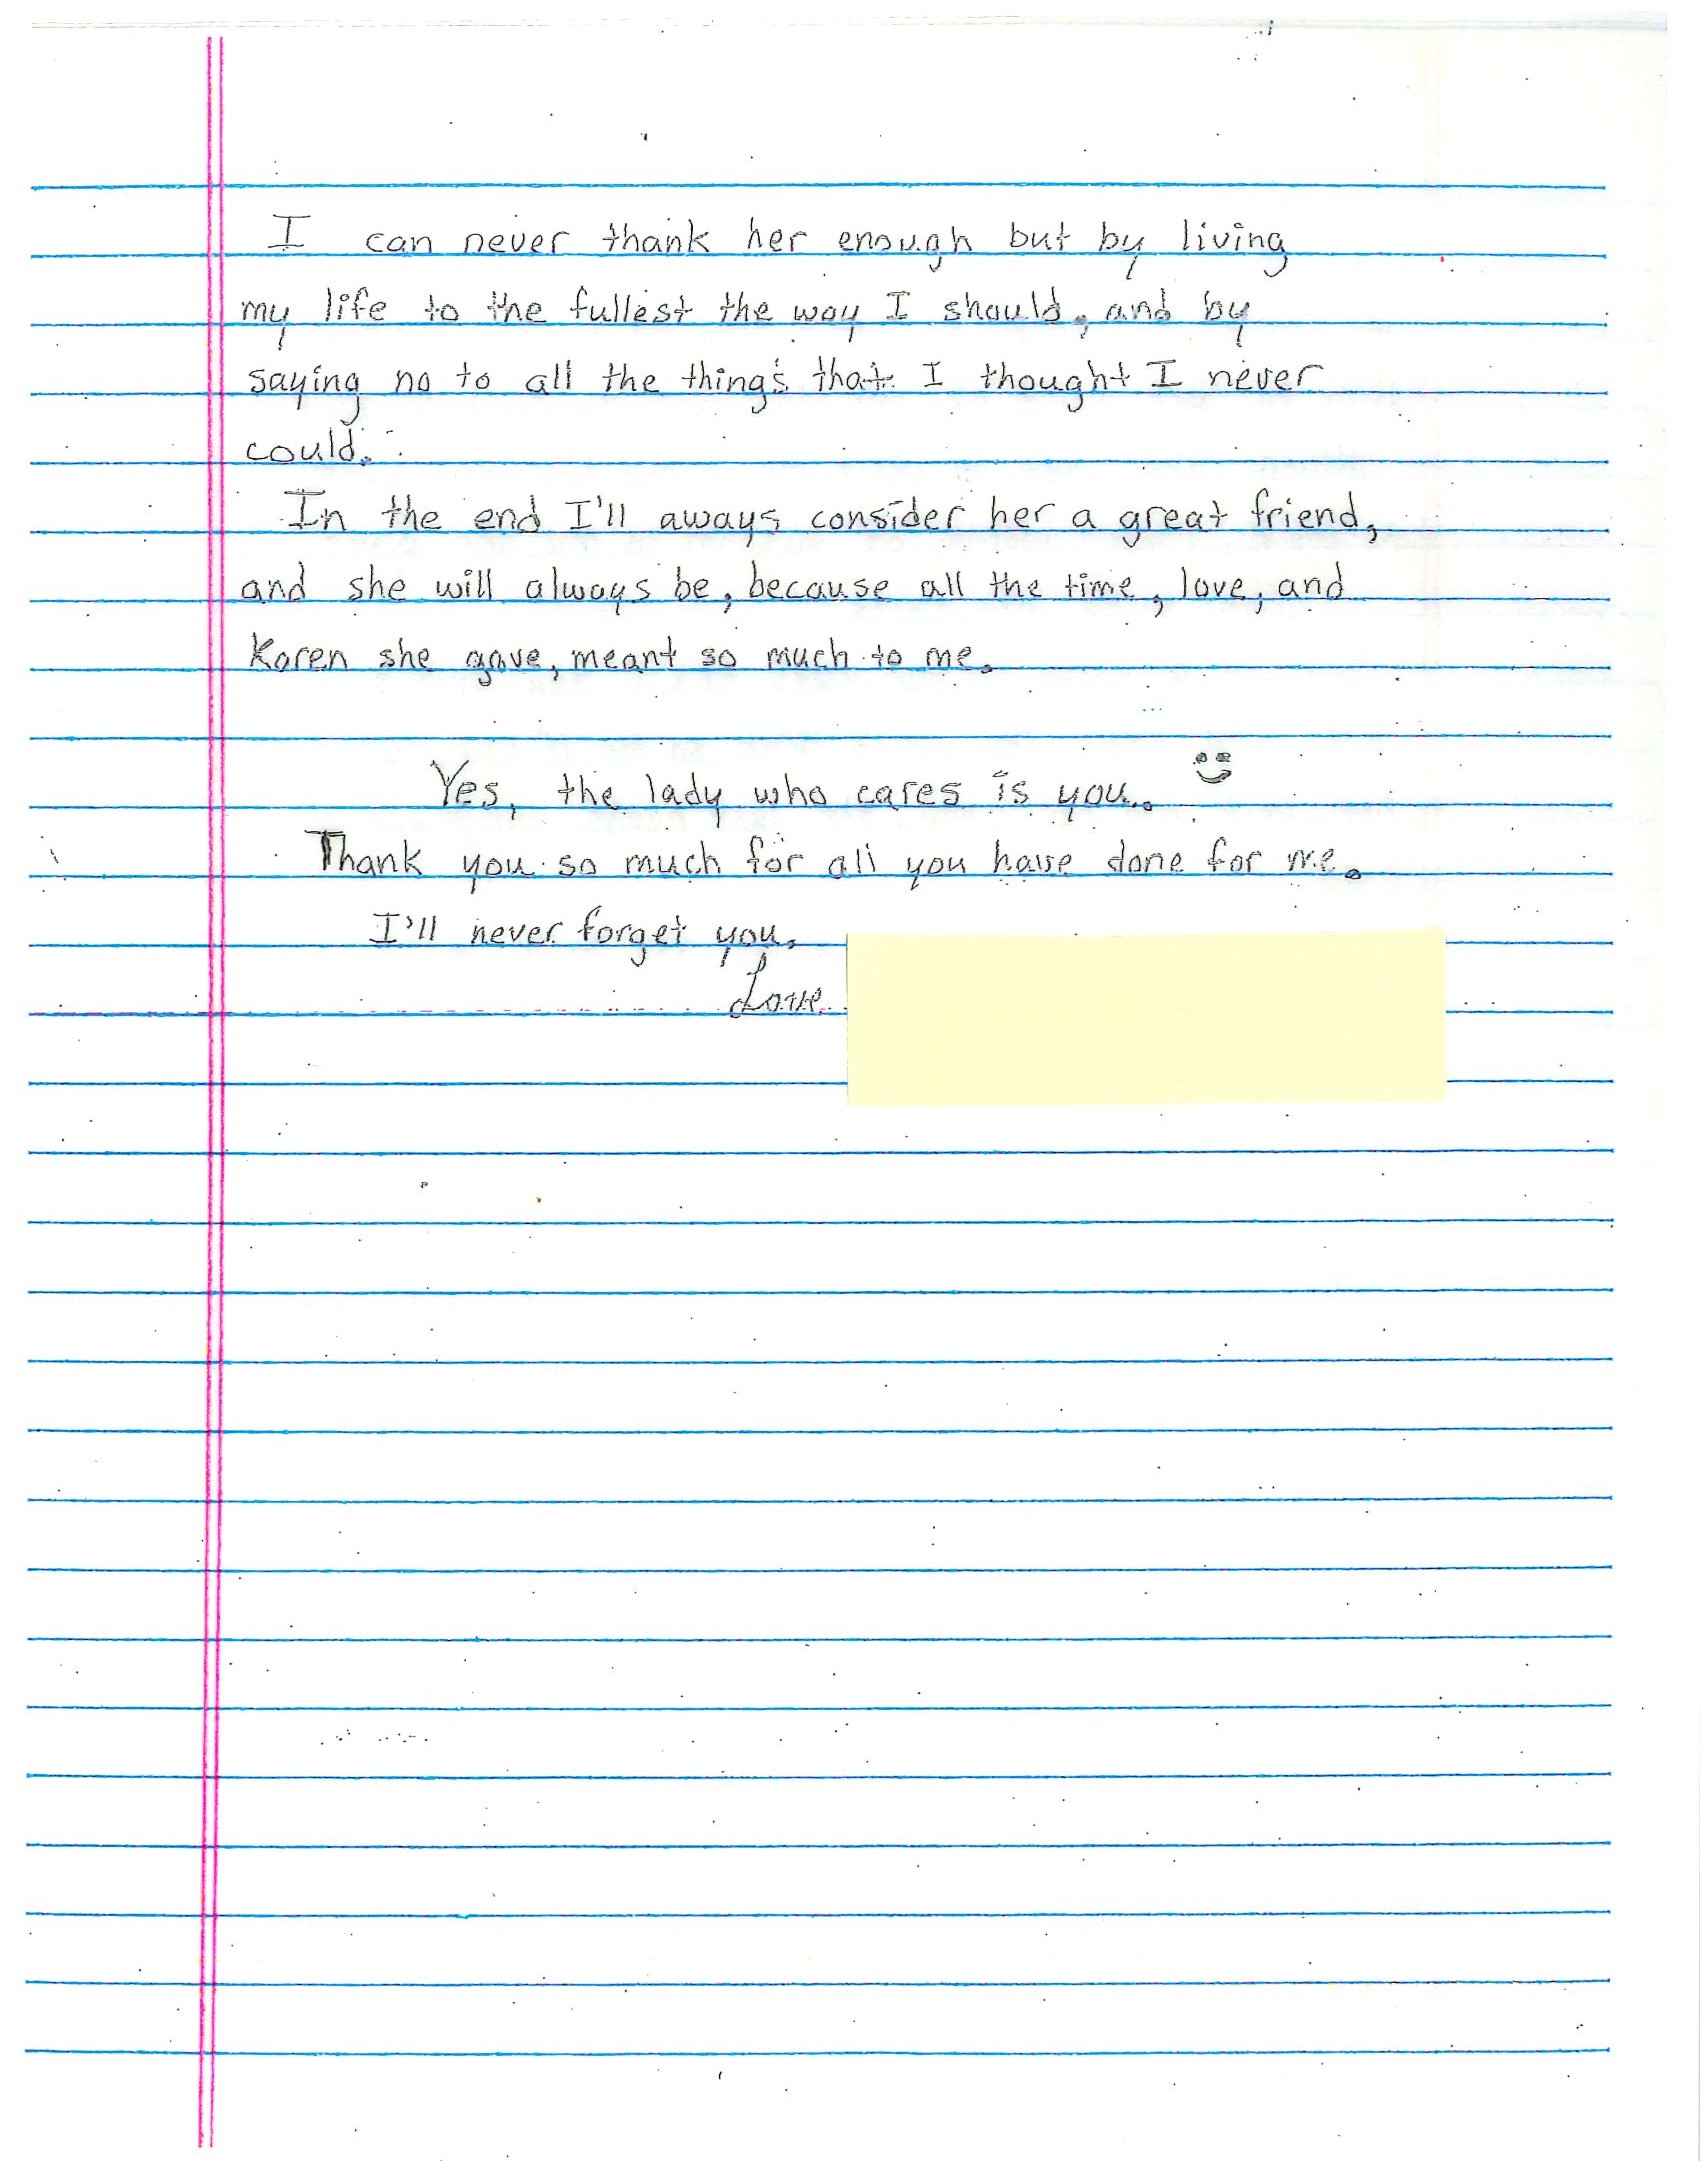 I can never thank her enough but by living
my life to the fullest the way I should, and by
saying no to all the things that I thought I never
could.
In the end I'll aways consider her a great friend,
and she will always be, because all the time, love, and
Karen she gave, meant so much to me.
Yes, the lady who cares is you.
Thank you so much for all you have done for me.
I'll never forget you.
Love